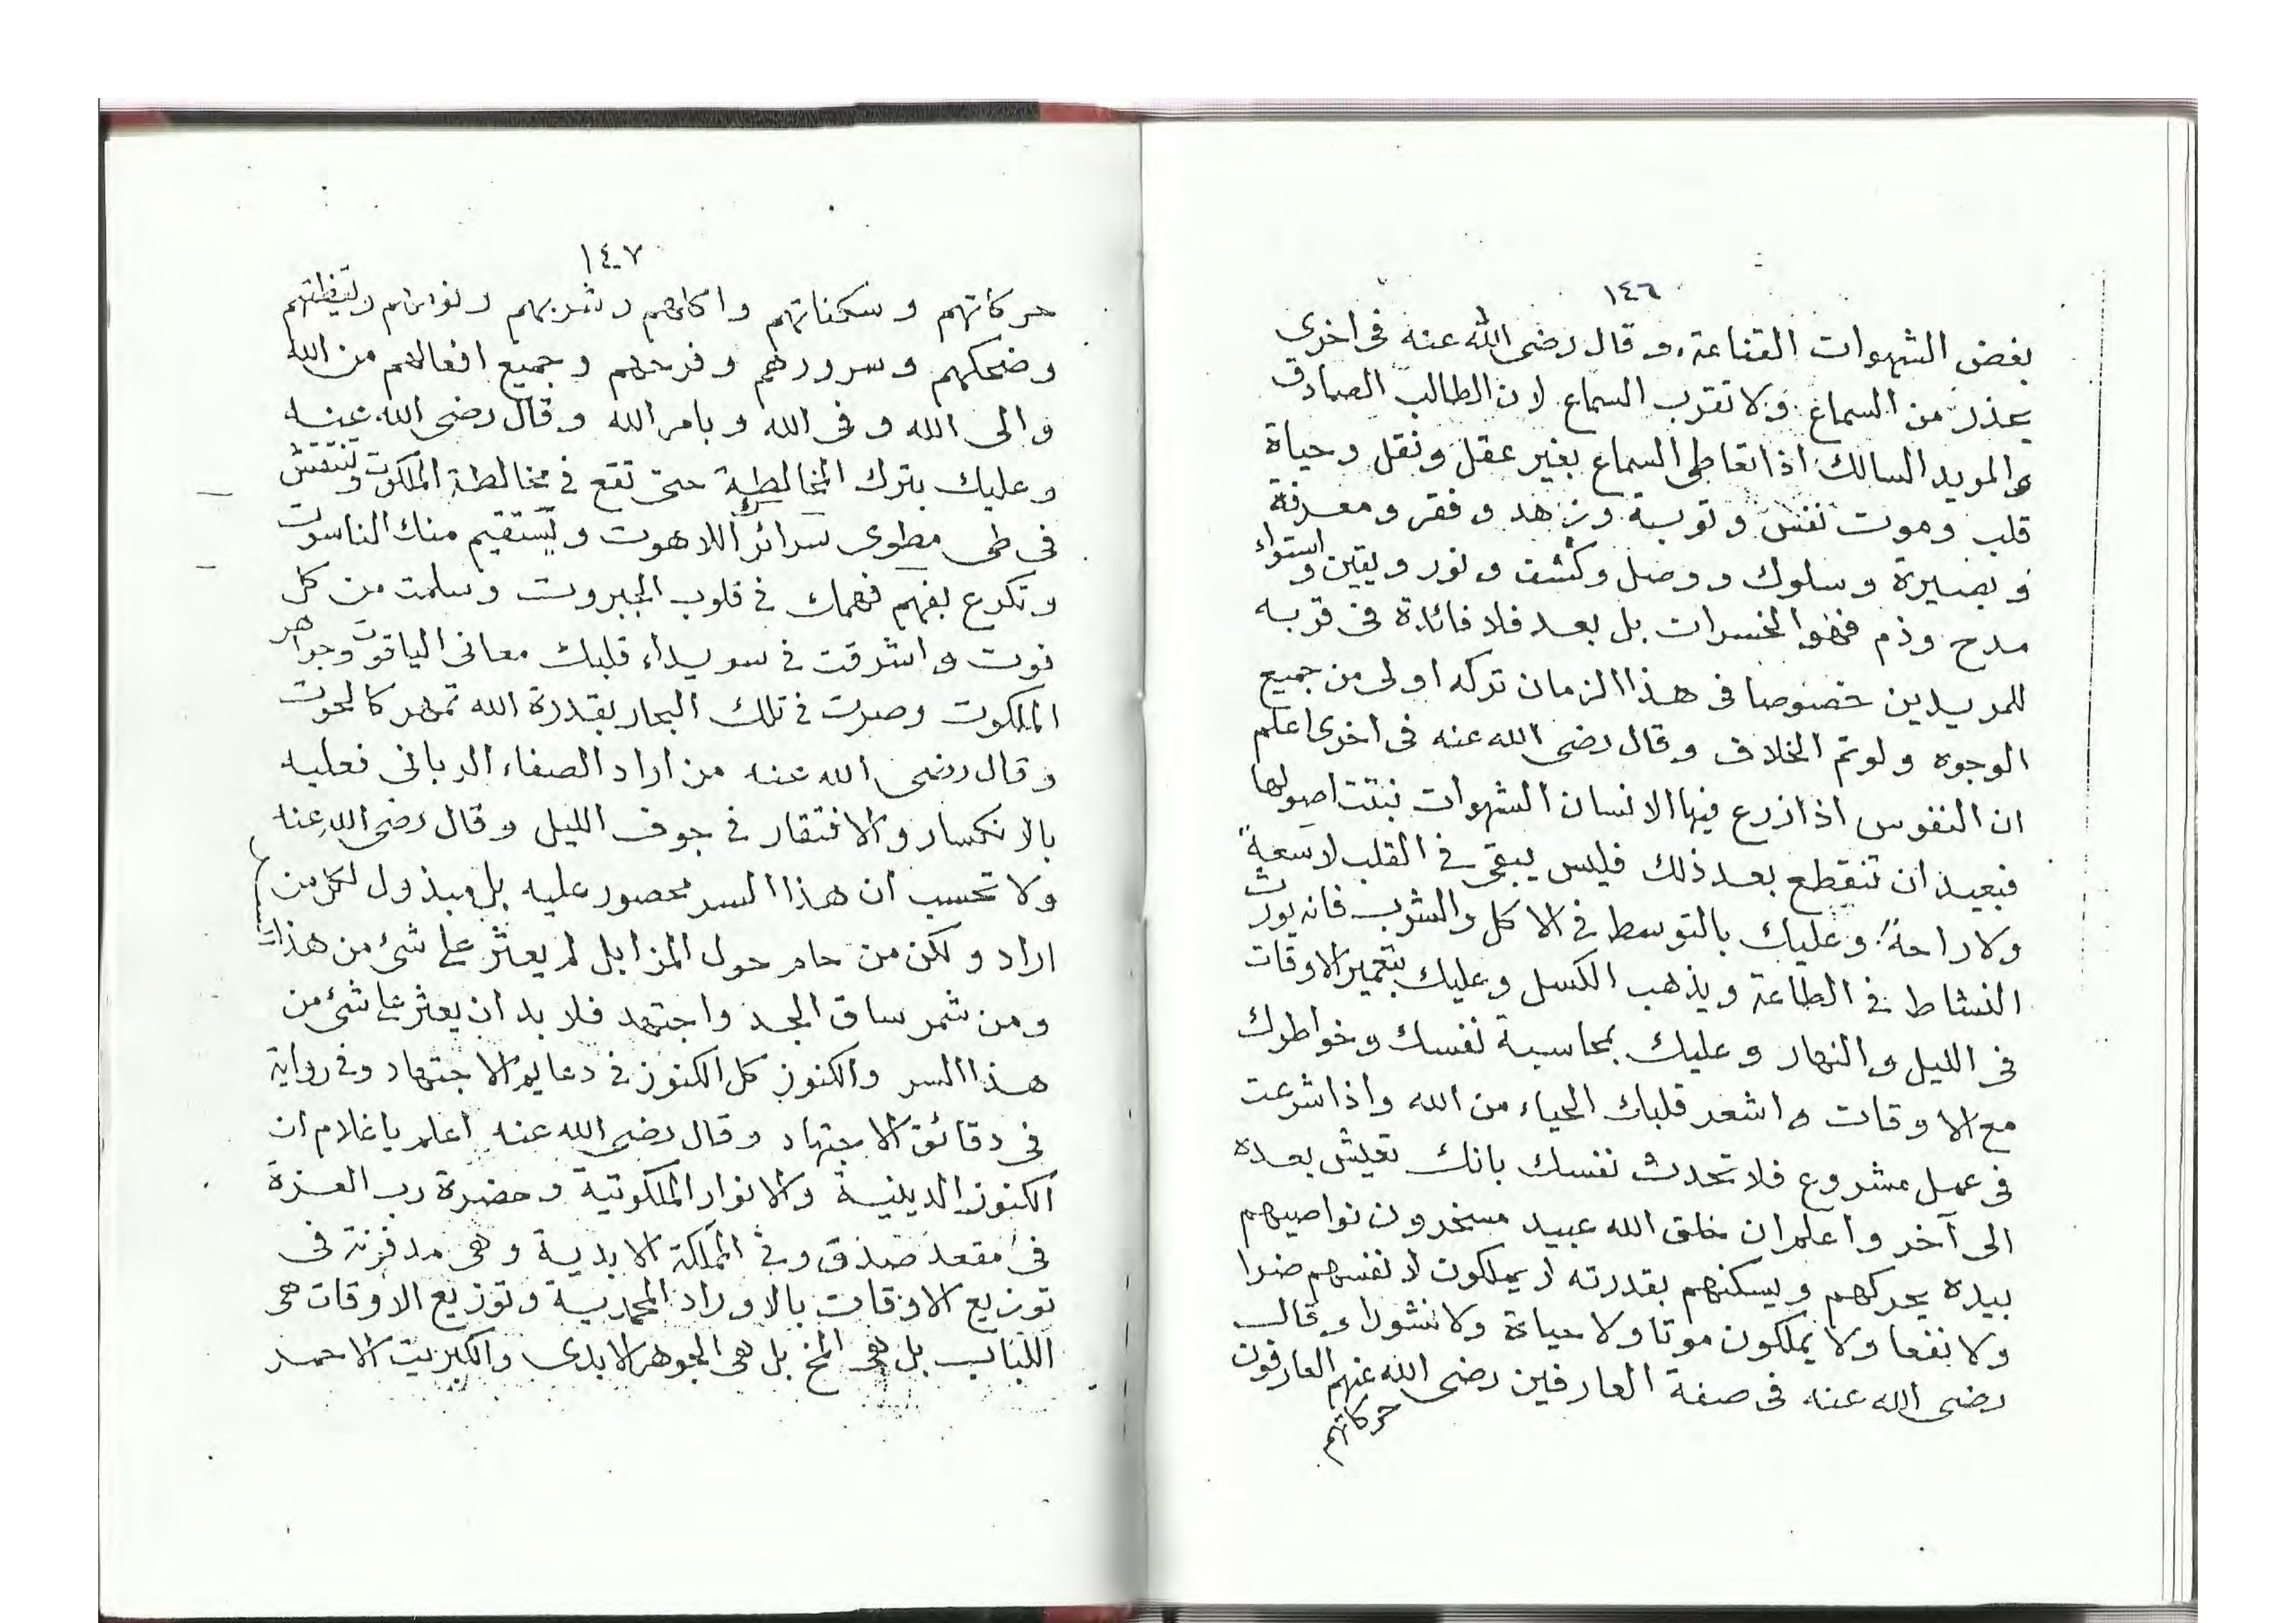 ١٤٦
بغض الشهوات القناعة، وقال رضى الله عنه فى اخرى
يحذر من السماع ولا تقرب السماع لان الطالب الصادق
والمريد السالك اذا تعاطى السماع بغير عقل ونقل وحياة
قلب وموت نفس وتوبة وزهد وفقر ومعرفة
وبصيرة وسلوك ووصل وكشف ونور ويقين واستواء
مدح وذم فهو الخسران بل بعد فلا فائدة فى قربه
للمريدين خصوصا فى هذا الزمان تركه اولى من جميع
الوجوه ولو تم الخلاف وقال رضى الله عنه فى اخرى اعلم
ان النفوس اذا زرع فيها الانسان الشهوات نبتت اصولها
فبعيد ان تنقطع بعد ذلك فليس يبقى فى القلب لا سعةً
ولا راحةً وعليك بالتوسط فى الاكل والشرب فانه يورث
النشاط فى الطاعة ويذهب الكسل وعليك بتعمير الاوقات
فى الليل والنهار وعليك بمحاسبة نفسك وخواطرك
مع الاوقات واشعر قلبك الحياء من الله واذا شرعت
فى عمل مشروع فلا تحدث نفسك بانك تعيش بعده
الى آخر واعلم ان خلق الله عبيد مسخرون نواصيهم
بيده يحركهم ويسكنهم بقدرته لا يملكون لانفسهم ضرا
ولا نفعا ولا يملكون موتا ولا حياة ولا نشورا وقال
رضى الله عنه فى صفة العارفين رضى الله عنهم العارفون
حركاتهم
١٤٧
حركاتهم وسكناتهم واكلهم وشربهم ونومهم ويقظتهم
وضحكهم وسرورهم وفرحهم وجميع افعالهم من الله
والى الله وفى الله وبامر الله وقال رضى الله عنه
وعليك بترك المخالطة حتى تقع فى مخالطة الملكوت وتنتقش
فى طى مطوى سرائرك اللاهوت ويستقيم منك الناسوت
وتكرع بفهم فهمك فى قلوب الجبروت وسلمت من كل
نوت واشرقت فى سويداء قلبك معانى الياقوت وجواهر
الملكوت وصرت فى تلك البحار بقدرة الله تمهر كالحوت
وقال رضى الله عنه من اراد الصفاء الربانى فعليه
بالانكسار والافتقار فى جوف الليل وقال رضى الله عنه
ولا تحسب ان هذا السر محصور عليه بل مبذول لكل من
اراد ولكن من حام حول المزابل لم يعثر على شئ من هذا السر
ومن شمر ساق الجد واجتهد فلا بد ان يعثر على شئ من
هذا السر والكنوز كل الكنوز فى دعايم الاجتهاد وفى رواية
فى دقائق الاجتهاد وقال رضى الله عنه اعلم يا غلام ان
الكنوز الدينية والانوار الملكوتية وحضرة رب العزة
فى مقعد صدق وفى المملكة الابدية وهى مدفونة فى
توزيع الاوقات بالاوراد المحمدية وتوزيع الاوقات هى
اللباب بل هى المخ بل هى الجوهر الابدى والكبريت الاحمر